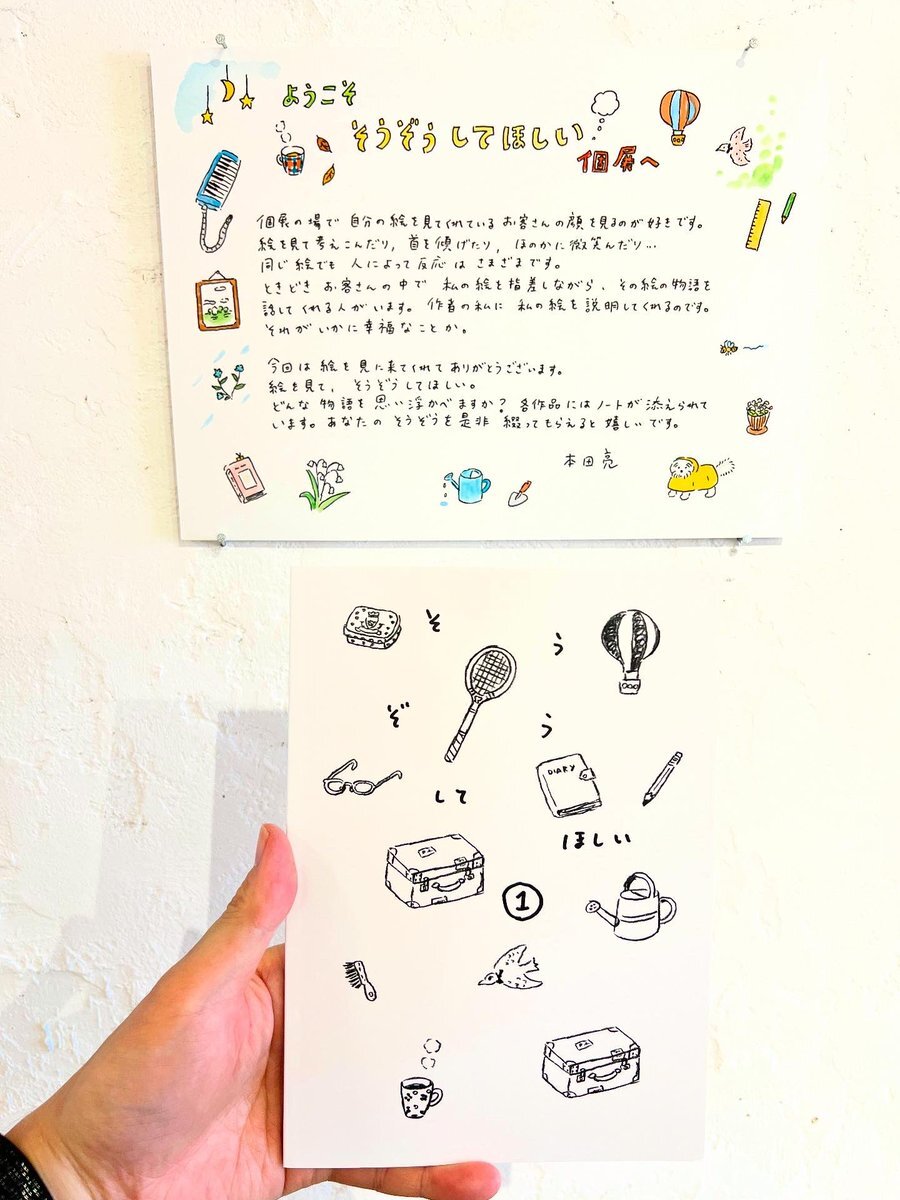 ようこそ
そうぞうしてほしい
個展へ
個展の場で 自分の絵を見てくれている お客さんの顔を見るのが好きです。
絵を見て考えこんだり, 首を傾げたり, ほのかに微笑んだり…
同じ絵でも 人によって反応は さまざまです。
ときどき お客さんの中で 私の絵を指差しながら、その絵の物語を
話してくれる人がいます。作者の私に 私の絵を説明してくれるのです。
それがいかに幸福なことか。
今回は 絵を見に来てくれて ありがとうございます。
絵を見て, そうぞうしてほしい。
どんな物語を思い浮かべますか? 各作品にはノートが添えられて
います。あなたの そうぞうを是非 綴ってもらえると 嬉しいです。
本田亮
そ
う
ぞ
う
DIARY
して
ほしい
①